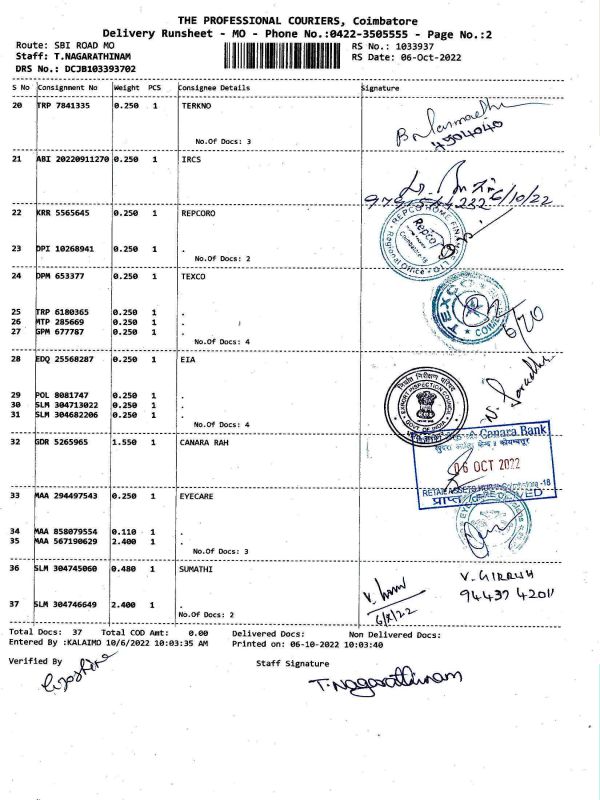 THE PROFESSIONAL COURIERS, Coimbatore
Delivery Runsheet - MO - Phone No.:0422-3505555 - Page No.:2
Route: SBI ROAD MO RS No.: 1033937
Staff: T.NAGARATHINAM RS Date: 06-Oct-2022
DRS No.: DCJB103393702
S No Consignment No Weight PCS Consignee Details Signature
20 TRP 7841335 0.250 1 TERKNO
No.Of Docs: 3
4504040
21 ABI 20220911270 0.250 1 IRCS
6/10/22
22 KRR 5565645 0.250 1 REPCORO
REPCO HOME FINANCE LTD
Repco
Coimbatore-18
Regional Office
23 DPI 10268941 0.250 1 .
No.Of Docs: 2
24 DPM 653377 0.250 1 TEXCO
TEXCO
25 TRP 6180365 0.250 1 .
26 MTP 285669 0.250 1 .
27 GPM 677787 0.250 1 .
No.Of Docs: 4
6/10
28 EDQ 25568287 0.250 1 EIA
निर्यात निरीक्षण परिषद
EXPORT INSPECTION COUNCIL
GOVT. OF INDIA
29 POL 8081747 0.250 1 .
30 SLM 304713022 0.250 1 .
31 SLM 304682206 0.250 1 .
No.Of Docs: 4
32 GDR 5265965 1.550 1 CANARA RAH
Canara Bank
06 OCT 2022
33 MAA 294497543 0.250 1 EYECARE
34 MAA 858079554 0.110 1 .
35 MAA 567190629 2.400 1 .
No.Of Docs: 3
36 SLM 304745060 0.480 1 SUMATHI
V. GIRRISH
94437 42011
37 SLM 304746649 2.400 1 .
No.Of Docs: 2
Total Docs: 37 Total COD Amt: 0.00 Delivered Docs: Non Delivered Docs:
Entered By :KALAIMO 10/6/2022 10:03:35 AM Printed on: 06-10-2022 10:03:40
Verified By Staff Signature
T.Nagarathinam